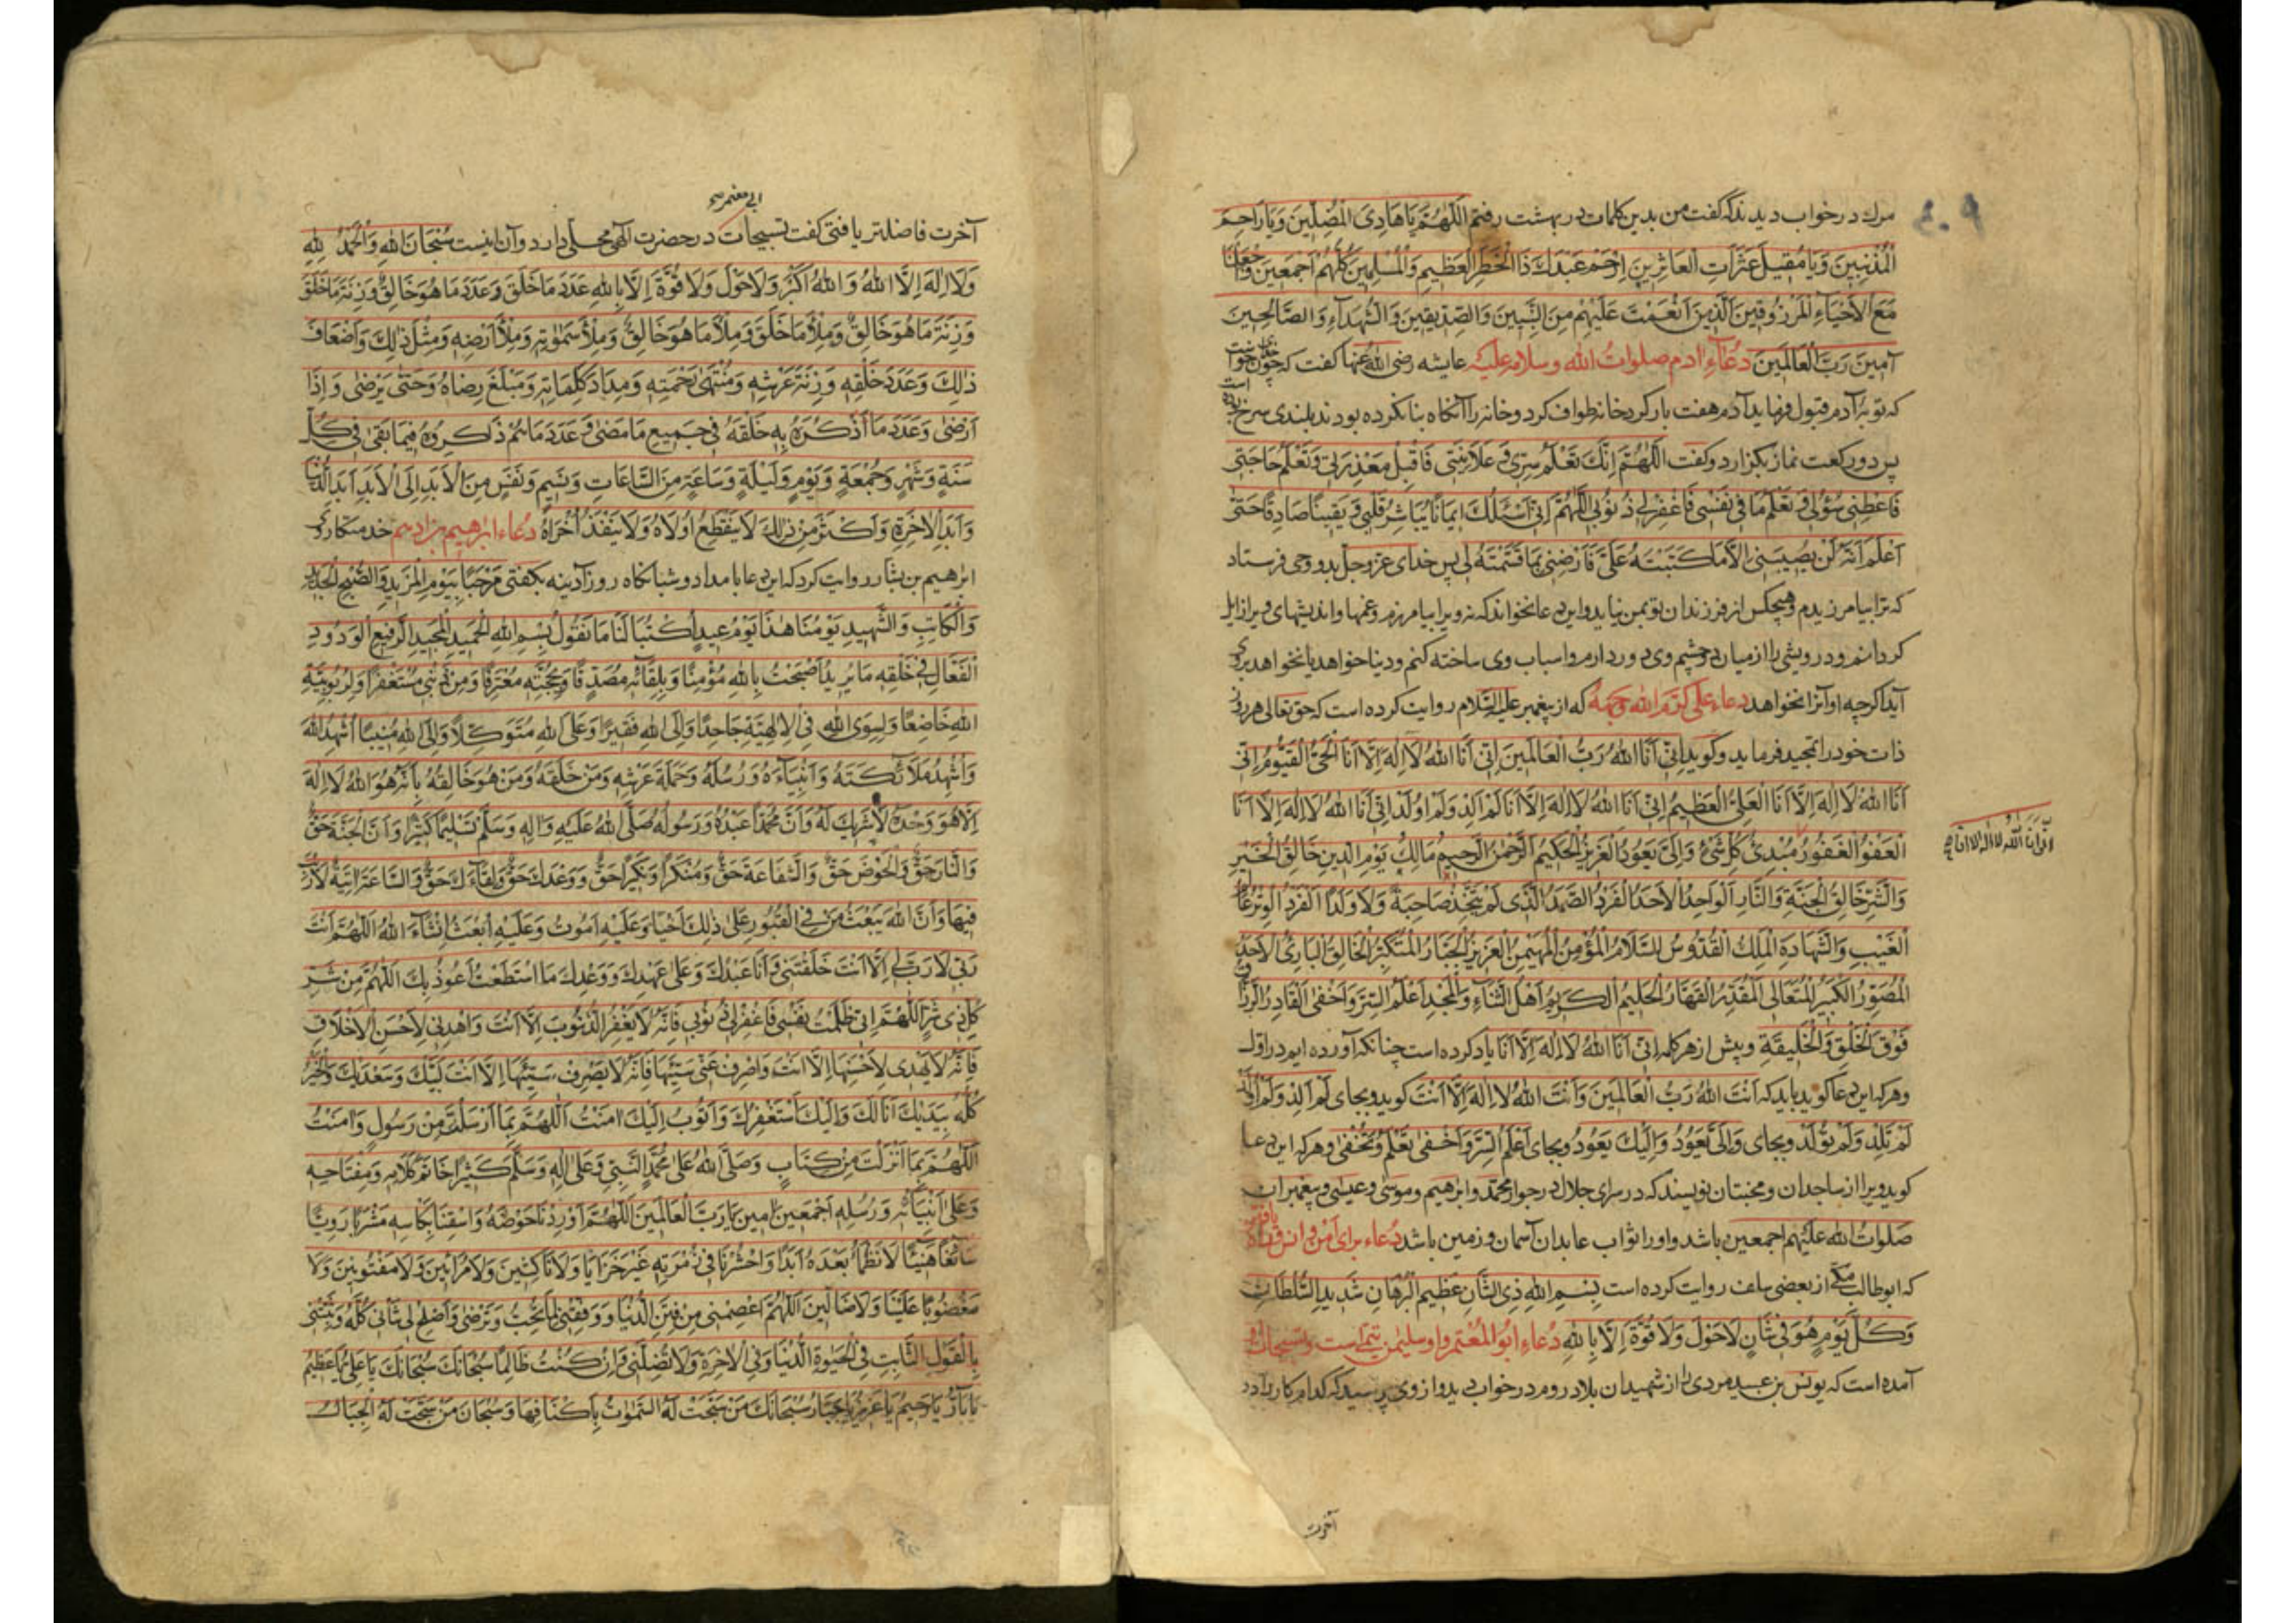 ۴۰۹
مرك در خواب ديدند كه گفت من بدين كلمات در بهشت رفتم اَللّٰهُمَّ يَا هَادِىَ الْمُضِلّينَ وَيَا رَاحِمَ
الْمُذْنِبِينَ وَيَا مُقِيلَ عَثَرَاتِ الْعَاثِرِينَ اِرْحَمْ عَبْدَكَ ذَا الْخَطَرِ الْعَظِيمِ وَالْمُسْلِمِينَ كُلَّهُمْ اَجْمَعِينَ وَاجْعَلْنَا
مَعَ الْاَحْيَاءِ الْمَرْزُوقِينَ الَّذِينَ اَنْعَمْتَ عَلَيْهِمْ مِنَ النَّبِيِّينَ وَالصِّدِّيقِينَ وَالشُّهَدَاءِ وَالصَّالِحِينَ
آمِينَ رَبَّ الْعَالَمِينَ دُعَآءِ اٰدم صلوات الله وسلامه عليه عايشه رضى الله عنها گفت كه چون خداى خواست
كه توبهٔ آدم قبول فرمايد آدم هفت بار گرد خانه طواف كرد و خانه را آنگاه بنا نكرده بودند بلندى سرخ بوده است
پس دو ركعت نماز بگزارد و گفت اَللّٰهُمَّ اِنَّكَ تَعْلَمُ سِرِّى وَعَلَانِيَتِى فَاقْبَلْ مَعْذِرَتِى وَتَعْلَمُ حَاجَتِى
فَاَعْطِنِى سُؤْلِى وَتَعْلَمُ مَا فِى نَفْسِى فَاغْفِرْ لِى ذُنُوبِى اَللّٰهُمَّ اِنِّى اَسْئَلُكَ اِيمَانًا يُبَاشِرُ قَلْبِى وَيَقِينًا صَادِقًا حَتّٰى
اَعْلَمَ اَنَّهُ لَنْ يُصِيبَنِى اِلَّا مَا كَتَبْتَهُ عَلَىَّ فَاَرْضِنِى بِمَا قَسَمْتَهُ لِى پس خداى عز وجل بدو وحى فرستاد
كه ترا بيامرزيدم و هيچكس از فرزندان تو بمن نيايد و اين دعا نخواند كه نه ويرا بيامرزم و غمها و انديشهاى وى زايل
گردانم و درويشى را از ميان دو چشم وى دور دارم و اسباب وى ساخته كنم و دنيا خواهد يا نخواهد بروى
آيد اگرچه او آنرا نخواهد دعاء على كرّم الله وجهه كه از پيغمبر عليه السلام روايت كرده است كه حق تعالى هر روز
ذات خود را تمجيد فرمايد و گويد اِنِّى اَنَا اللهُ رَبُّ الْعَالَمِينَ اِنِّى اَنَا اللهُ لَا اِلٰهَ اِلَّا اَنَا الْحَىُّ الْقَيُّومُ اِنِّى
اَنَا اللهُ لَا اِلٰهَ اِلَّا اَنَا الْعَلِىُّ الْعَظِيمُ اِنِّى اَنَا اللهُ لَا اِلٰهَ اِلَّا اَنَا لَمْ اَلِدْ وَلَمْ اُولَدْ اِنِّى اَنَا اللهُ لَا اِلٰهَ اِلَّا اَنَا
الْعَفُوُّ الْغَفُورُ مُبْدِئُ كُلِّ شَىْءٍ وَاِلَىَّ يَعُودُ الْعَزِيزُ الْحَكِيمُ الرَّحْمٰنُ الرَّحِيمُ مَالِكُ يَوْمِ الدِّينِ خَالِقُ الْخَيْرِ
انى انا الله لا اله الا انا
وَالشَّرِّ خَالِقُ الْجَنَّةِ وَالنَّارِ الْوَاحِدُ الْاَحَدُ الْفَرْدُ الصَّمَدُ الَّذِى لَمْ يَتَّخِذْ صَاحِبَةً وَلَا وَلَدًا الْفَرْدُ الْوِتْرُ عَالِمُ
الْغَيْبِ وَالشَّهَادَةِ الْمَلِكُ الْقُدُّوسُ السَّلَامُ الْمُؤْمِنُ الْمُهَيْمِنُ الْعَزِيزُ الْجَبَّارُ الْمُتَكَبِّرُ الْخَالِقُ الْبَارِئُ الْاَحَدُ
الْمُصَوِّرُ الْكَبِيرُ الْمُتَعَالِى الْمُقْتَدِرُ الْقَهَّارُ الْحَلِيمُ الْكَرِيمُ اَهْلُ الثَّنَاءِ وَالْمَجْدِ اَعْلَمُ السِّرَّ وَاَخْفٰى الْقَادِرُ الرَّزَّاقُ
فَوْقَ الْخَلْقِ وَالْخَلِيقَةِ و پيش از هر كلمه اِنِّى اَنَا اللهُ لَا اِلٰهَ اِلَّا اَنَا ياد كرده است چنانكه آورده ايم در اوّل
و هر كه اين دعا گويد بايد كه اَنْتَ اللهُ رَبُّ الْعَالَمِينَ وَاَنْتَ اللهُ لَا اِلٰهَ اِلَّا اَنْتَ گويد و بجاى لَمْ اَلِدْ وَلَمْ اُولَدْ
لَمْ تَلِدْ وَلَمْ تُولَدْ و بجاى وَاِلَىَّ يَعُودُ وَاِلَيْكَ يَعُودُ و بجاى اَعْلَمُ السِّرَّ وَاَخْفٰى تَعْلَمُ وَتُخْفٰى و هر كه اين دعا
گويد ويرا از ساجدان و مخبتان نويسند كه در سراى جلال در جوار محمد و ابرهيم و موسى و عيسى و پيغمبران
صلوات الله عليهم اجمعين باشد و او را ثواب عابدان آسمان و زمين باشد دعاء براى
كه ابوطالب مكّى از بعضى سلف روايت كرده است بِسْمِ اللهِ ذِى الشَّانِ عَظِيمِ الْبُرْهَانِ شَدِيدِ السُّلْطَانِ
وَكُلَّ يَوْمٍ هُوَ فِى شَانٍ لَا حَوْلَ وَلَا قُوَّةَ اِلَّا بِاللهِ دُعَاءِ ابُو الْمُعْتَمِر و او سليمن تيمى است و تسبيحات او
آمده است كه يونس بن عبيد مردى را از شهيدان بلاد روم در خواب ديد و از وى پرسيد كه كدام كار را در
آخرت
آخرت فاضلتر يافتى گفت تسبيحات در حضرت الٰهى محلّى دارد و آن اينست سُبْحَانَ اللهِ وَالْحَمْدُ لِلّٰهِ
وَلَا اِلٰهَ اِلَّا اللهُ وَاللهُ اَكْبَرُ وَلَا حَوْلَ وَلَا قُوَّةَ اِلَّا بِاللهِ عَدَدَ مَا خَلَقَ وَعَدَدَ مَا هُوَ خَالِقٌ وَزِنَةَ مَا خَلَقَ
وَزِنَةَ مَا هُوَ خَالِقٌ وَمِلْأَ مَا خَلَقَ وَمِلْأَ مَا هُوَ خَالِقٌ وَمِلْأَ سَمٰوَاتِهِ وَمِلْأَ اَرْضِهِ وَمِثْلَ ذٰلِكَ وَاَضْعَافَ
ذٰلِكَ وَعَدَدَ خَلْقِهِ وَزِنَةَ عَرْشِهِ وَمُنْتَهٰى رَحْمَتِهِ وَمِدَادَ كَلِمَاتِهِ وَمَبْلَغَ رِضَاهُ وَحَتّٰى يَرْضٰى وَاِذَا
اَرْضٰى وَعَدَدَ مَا اَذْكَرَهُ بِهِ خَلْقَهُ فِى جَمِيعِ مَا مَضٰى وَعَدَدَ مَا هُمْ ذَاكِرُوهُ فِيمَا بَقِىَ فِى كُلِّ
سَنَةٍ وَشَهْرٍ وَجُمُعَةٍ وَيَوْمٍ وَلَيْلَةٍ وَسَاعَةٍ مِنَ السَّاعَاتِ وَنَسِيمٍ وَنَفَسٍ مِنَ الْاَبَدِ اِلَى الْاَبَدِ اَبَدِ الدُّنْيَا
وَاَبَدِ الْاٰخِرَةِ وَاَكْثَرَ مِنْ ذٰلِكَ لَا يَنْقَطِعُ اُولَاهُ وَلَا يَنْفَدُ اُخْرَاهُ دُعَاء ابرهيم بن ادهم خدمتكار وى
ابرهيم بن بشار روايت كرد كه اين دعا بامداد و شبانگاه روز آدينه بگفتى مَرْحَبًا بِيَوْمِ الْمَزِيدِ وَالصُّبْحِ الْجَدِيدِ
وَالْكَاتِبِ وَالشَّهِيدِ يَوْمُنَا هٰذَا يَوْمُ عِيدٍ اُكْتُبْ لَنَا مَا نَقُولُ بِسْمِ اللهِ الْحَمِيدِ الْمَجِيدِ الرَّفِيعِ الْوَدُودِ
الْفَعَّالِ فِى خَلْقِهِ مَا يُرِيدُ اَصْبَحْتُ بِاللهِ مُؤْمِنًا وَبِلِقَائِهِ مُصَدِّقًا وَبِحُجَّتِهِ مُعْتَرِفًا وَمِنْ ذَنْبِى مُسْتَغْفِرًا وَلِرُبُوبِيَّةِ
اللهِ خَاضِعًا وَلِسِوَى اللهِ فِى الْاِلٰهِيَّةِ جَاحِدًا وَاِلَى اللهِ فَقِيرًا وَعَلَى اللهِ مُتَوَكِّلًا وَاِلَى اللهِ مُنِيبًا اُشْهِدُ اللهَ
وَاُشْهِدُ مَلَائِكَتَهُ وَاَنْبِيَاءَهُ وَرُسُلَهُ وَحَمَلَةَ عَرْشِهِ وَمَنْ خَلَقَهُ وَمَنْ هُوَ خَالِقُهُ بِاَنَّهُ هُوَ اللهُ لَا اِلٰهَ
اِلَّا هُوَ وَحْدَهُ لَا شَرِيكَ لَهُ وَاَنَّ مُحَمَّدًا عَبْدُهُ وَرَسُولُهُ صَلَّى اللهُ عَلَيْهِ وَاٰلِهِ وَسَلَّمَ تَسْلِيمًا كَثِيرًا وَاَنَّ الْجَنَّةَ حَقٌّ
وَالنَّارَ حَقٌّ وَالْحَوْضَ حَقٌّ وَالشَّفَاعَةَ حَقٌّ وَمُنْكَرًا وَنَكِيرًا حَقٌّ وَوَعْدَكَ حَقٌّ وَلِقَاءَكَ حَقٌّ وَالسَّاعَةَ اٰتِيَةٌ لَا رَيْبَ
فِيهَا وَاَنَّ اللهَ يَبْعَثُ مَنْ فِى الْقُبُورِ عَلٰى ذٰلِكَ اَحْيَا وَعَلَيْهِ اَمُوتُ وَعَلَيْهِ اُبْعَثُ اِنْشَاءَ اللهُ اَللّٰهُمَّ اَنْتَ
رَبِّى لَا رَبَّ لِى اِلَّا اَنْتَ خَلَقْتَنِى وَاَنَا عَبْدُكَ وَعَلٰى عَهْدِكَ وَوَعْدِكَ مَا اسْتَطَعْتُ اَعُوذُ بِكَ اَللّٰهُمَّ مِنْ شَرِّ
كُلِّ ذِى شَرٍّ اَللّٰهُمَّ اِنِّى ظَلَمْتُ نَفْسِى فَاغْفِرْ لِى ذُنُوبِى فَاِنَّهُ لَا يَغْفِرُ الذُّنُوبَ اِلَّا اَنْتَ وَاهْدِنِى لِاَحْسَنِ الْاَخْلَاقِ
فَاِنَّهُ لَا يَهْدِى لِاَحْسَنِهَا اِلَّا اَنْتَ وَاصْرِفْ عَنِّى سَيِّئَهَا فَاِنَّهُ لَا يَصْرِفُ سَيِّئَهَا اِلَّا اَنْتَ لَبَّيْكَ وَسَعْدَيْكَ وَالْخَيْرُ
كُلُّهُ بِيَدَيْكَ اَنَا لَكَ وَاِلَيْكَ اَسْتَغْفِرُكَ وَاَتُوبُ اِلَيْكَ اٰمَنْتُ اَللّٰهُمَّ بِمَا اَرْسَلْتَ مِنْ رَسُولٍ وَاٰمَنْتُ
اَللّٰهُمَّ بِمَا اَنْزَلْتَ مِنْ كِتَابٍ وَصَلَّى اللهُ عَلٰى مُحَمَّدٍ النَّبِىِّ وَعَلٰى اٰلِهِ وَسَلَّمَ كَثِيرًا خَاتَمِ كَلَامِى وَمِفْتَاحِهِ
وَعَلٰى اَنْبِيَائِهِ وَرُسُلِهِ اَجْمَعِينَ اٰمِينَ يَا رَبَّ الْعَالَمِينَ اَللّٰهُمَّ اَوْرِدْنَا حَوْضَهُ وَاسْقِنَا بِكَاسِهِ مَشْرَبًا رَوِيًّا
سَائِغًا هَنِيئًا لَا نَظْمَأُ بَعْدَهُ اَبَدًا وَاحْشُرْنَا فِى زُمْرَتِهِ غَيْرَ خَزَايَا وَلَا نَاكِثِينَ وَلَا مُرْتَابِينَ وَلَا مَفْتُونِينَ وَلَا
مَغْضُوبًا عَلَيْنَا وَلَا ضَالِّينَ اَللّٰهُمَّ اعْصِمْنِى مِنْ فِتَنِ الدُّنْيَا وَوَفِّقْنِى لِمَا تُحِبُّ وَتَرْضٰى وَاَصْلِحْ لِى شَأْنِى كُلَّهُ وَثَبِّتْنِى
بِالْقَوْلِ الثَّابِتِ فِى الْحَيٰوةِ الدُّنْيَا وَفِى الْاٰخِرَةِ وَلَا تُضِلَّنِى وَاِنْ كُنْتُ ظَالِمًا سُبْحَانَكَ سُبْحَانَكَ يَا عَلِىُّ يَا عَظِيمُ
يَا بَارُّ يَا رَحِيمُ يَا عَزِيزُ يَا جَبَّارُ سُبْحَانَكَ مَنْ سَبَّحَتْ لَهُ السَّمٰوَاتُ بِاَكْنَافِهَا وَسُبْحَانَ مَنْ سَبَّحَتْ لَهُ الْجِبَالُ